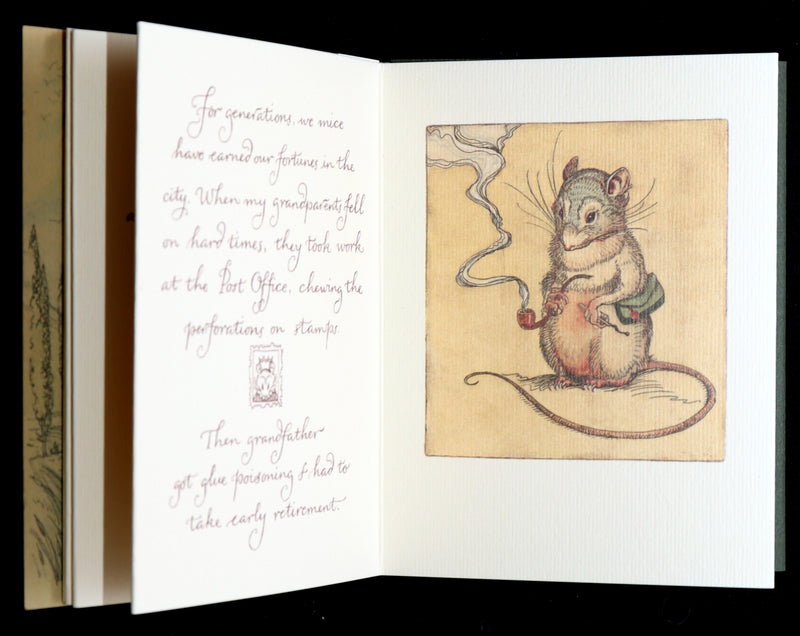 For generations, we mice
have earned our fortunes in the
city. When my grandparents fell
on hard times, they took work
at the Post Office, chewing the
perforations on stamps.
Then grandfather
got glue poisoning & had to
take early retirement.